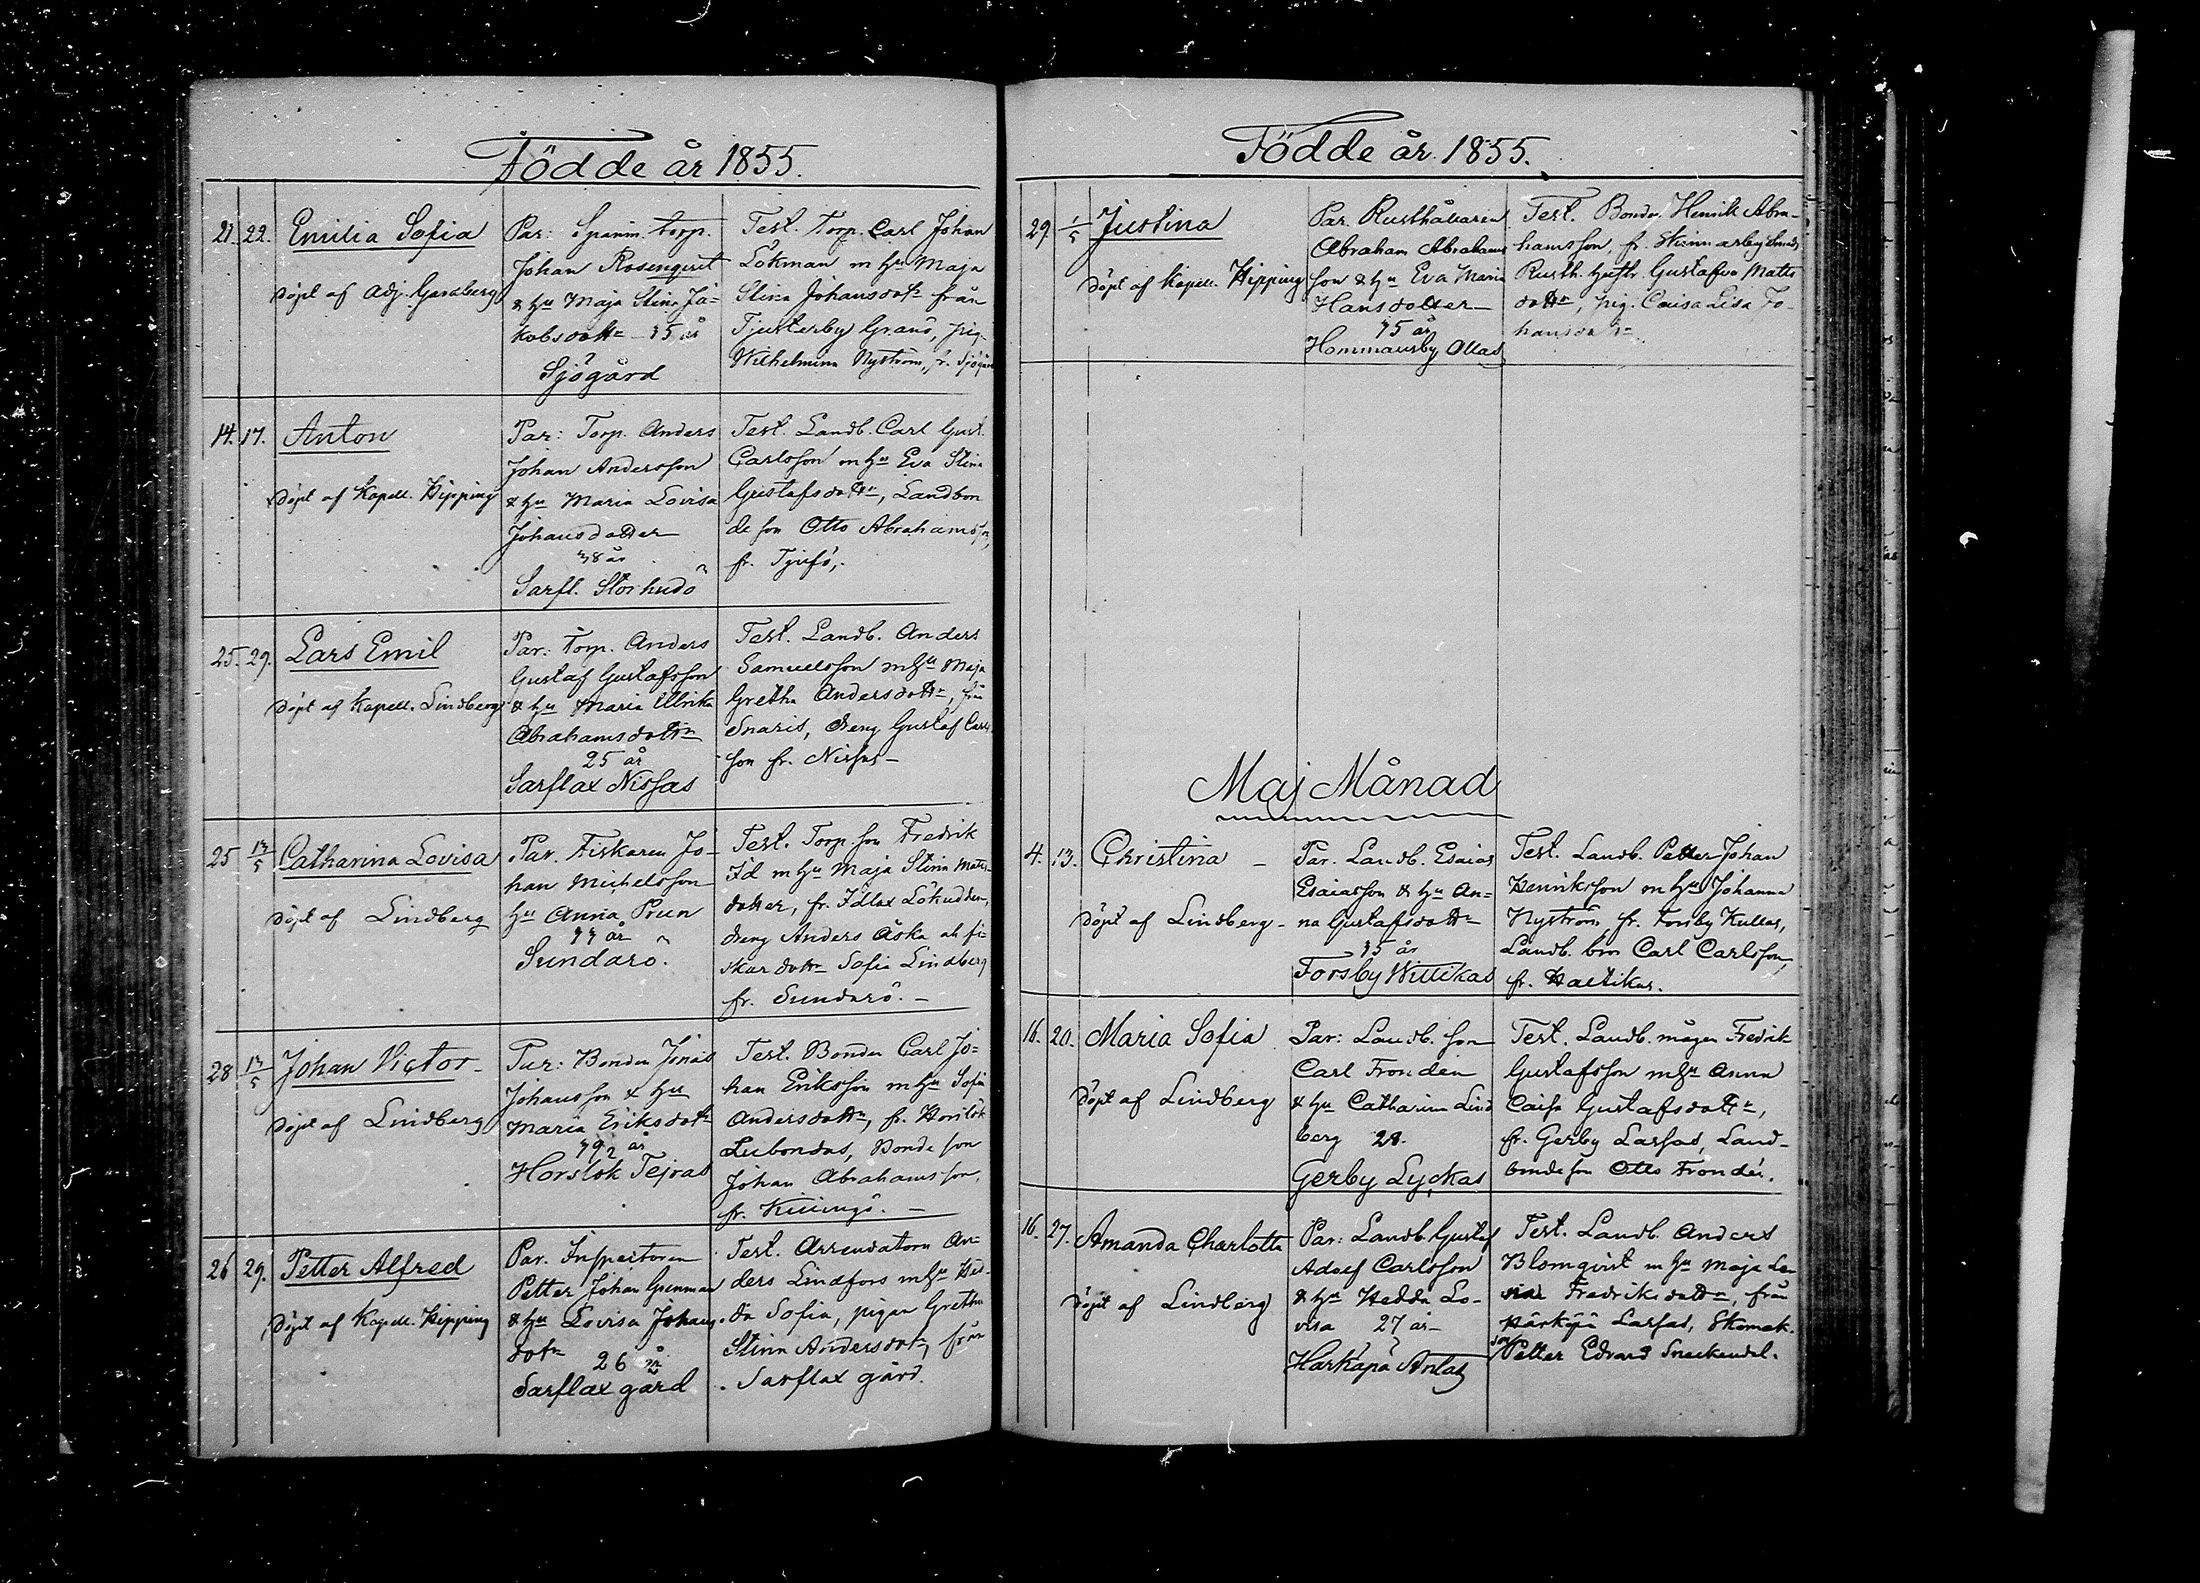 Födde år 1855.
21. 22. Emilia Sofia
Döpt af Adj. Gardberg
Par: Spanm. torp.
Johan Rosenqvist
& hu Maja Stina Ja-
kobsdottr 35 år
Sjögård
Test. Torp. Carl Johan
Lökman m hu Maja
Stina Johansdotr från
Tjusterby Granö, pig.
Wilhelmina Nyström, fr. Sjögård
14. 17. Anton
Döpt af Kapell. Hipping
Par: Torp. Anders
Johan Andersson
& hu Maria Lovisa
Johansdotter
38 år
Sarfl. Storhudö
Test. Landb. Carl Gust.
Carlsson m hu Eva Stina
Gustafsdottr, Landbon
de son Otto Abrahamsson,
fr. Tjufö,
25. 29. Lars Emil
Döpt af Kapell. Lindberg
Par: Torp. Anders
Gustaf Gustafsson
& hu Maria Ulrika
Abrahamsdottr
25 år
Sarflax Nissas
Test. Landb. Anders
Samuelsson m hu Maja
Gretha Andersdottr, från
Snaris, dreng Gustaf Carls
son fr. Nissas
25 13/5 Catharina Lovisa
Döpt af Lindberg
Par. Fiskaren Jo-
han Michelsson
hu Anna Prun
33 år
Sundarö.
Test. Torp son Fredrik
Id m hu Maja Stina Mats
dotter, fr. Idlax Lökudden,
dreng Anders Åska och fi-
skar dottr Sofia Lindberg
fr. Sundarö. -
28 13/5 Johan Victor -
Döpt af Lindberg
Par: Bonden Jonas
Johansson & hu
Maria Eriksdotr
39½ år
Horslök Tejras
Test. Bonden Carl Jo-
han Eriksson m hu Sofia
Andersdottr, fr. Horslök
Lubondas, Bonde son
Johan Abrahamsson,
fr. Killingö. -
26 29. Petter Alfred
Döpt af Kapell. Hipping
Par. Inspectoren
Petter Johan Grenman
& hu Lovisa Johans
dotr 26 år
Sarflax gård
Test. Arrendatorn An-
ders Lindfors m hu Hed-
da Sofia, pigan Gretha
Stina Andersdotr, från
Sarflax gård.
Födde år 1855.
29. 1/5 Justina
Döpt af Kapell. Hipping
Par. Rusthållaren
Abraham Abrahams
son & hu Eva Maria
Hansdotter
35 år
Hommansby Ollas
Test. Bonden Henrik Abra-
hamsson, fr. Skinnarby
Rusth. hustr. Gustafva Matts
dottr, pig. Caisa Lisa Jo-
hansdotr
Maj Månad
4. 13. Christina -
Döpt af Lindberg -
Par. Landb. Esaias
Esaiasson & hu An-
na Gustafsdottr
35 år
Forsby Willikas
Test. Landb. Petter Johan
Henriksson m hu Johanna
Nyström, fr. Forsby Kullas,
Landb. bror Carl Carlsson,
fr. Haltikas.
16. 20. Maria Sofia
Döpt af Lindberg
Par: Landb. son
Carl Fronden
& hu Catharina Lind
berg 28.
Gerby Lyckas
Test. Landb. mågen Fredrik
Gustafsson m hu Anna
Caisa Gustafsdottr,
fr. Gerby Lassas, Land-
bonde son Otto Frondén.
16. 27. Amanda Charlotta
Döpt af Lindberg
Par: Landb. Gustaf
Adolf Carlsson
& hu Hedda Lo-
visa 27 år
Härkäpä Antas
Test. Landb. Anders
Blomqvist m hu Maja Lo-
visa Fredriksdottr, från
Härkäpä Lassas, Skomak.
son Petter Edvard Sneckendal.